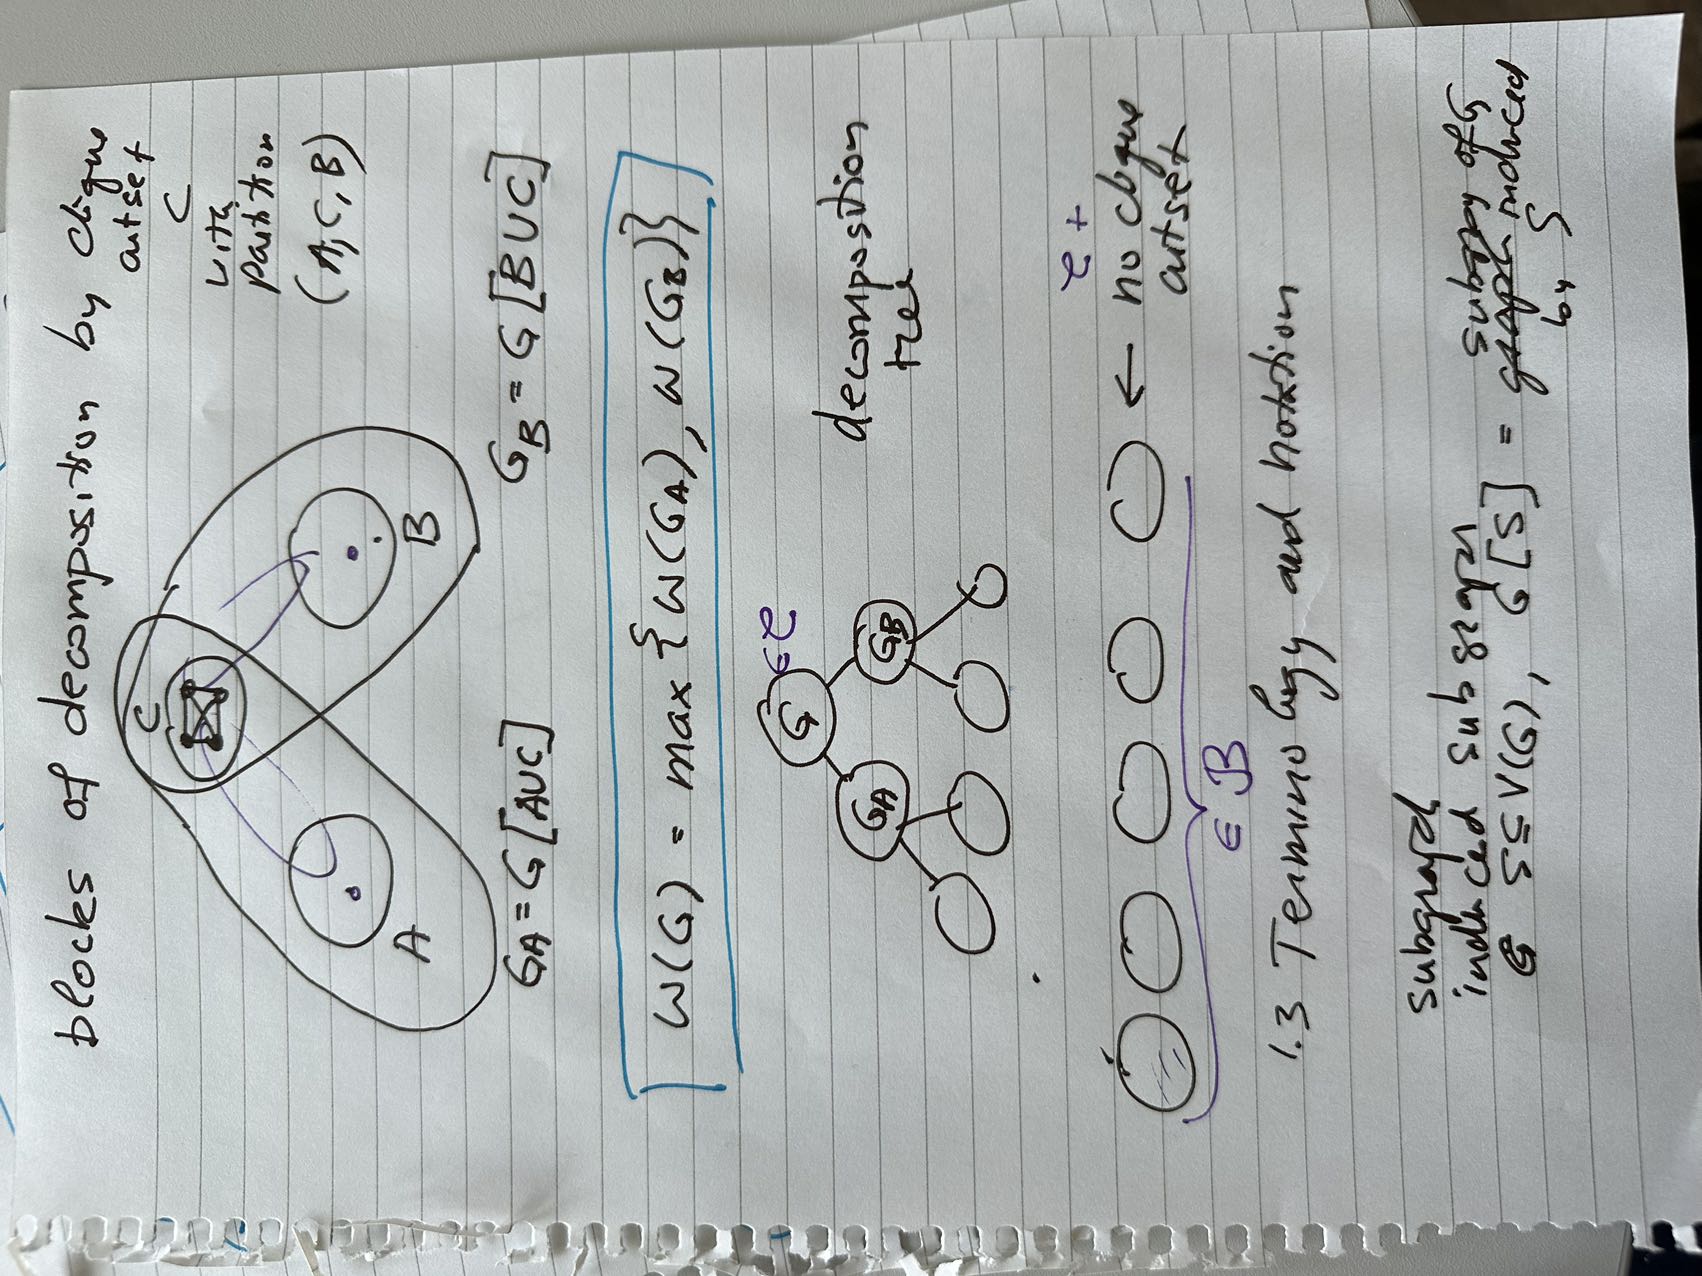 blocks of decomposition by clique
cutset
C
with
partition
(A, C, B)
C
A
B
G_A = G[A∪C]
G_B = G[B∪C]
ω(G) = max {ω(G_A), ω(G_B)}
G ∈ 𝒞
G_A
G_B
decomposition
tree
𝒞 +
← no clique
cutset
∈ ℬ
1.3 Terminology and notation
subgraph
induced subgraph
G S ⊆ V(G), G[S] = graph induced
subgraph of G
by S